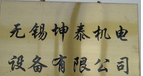 无锡坤泰机电
设备有限公司